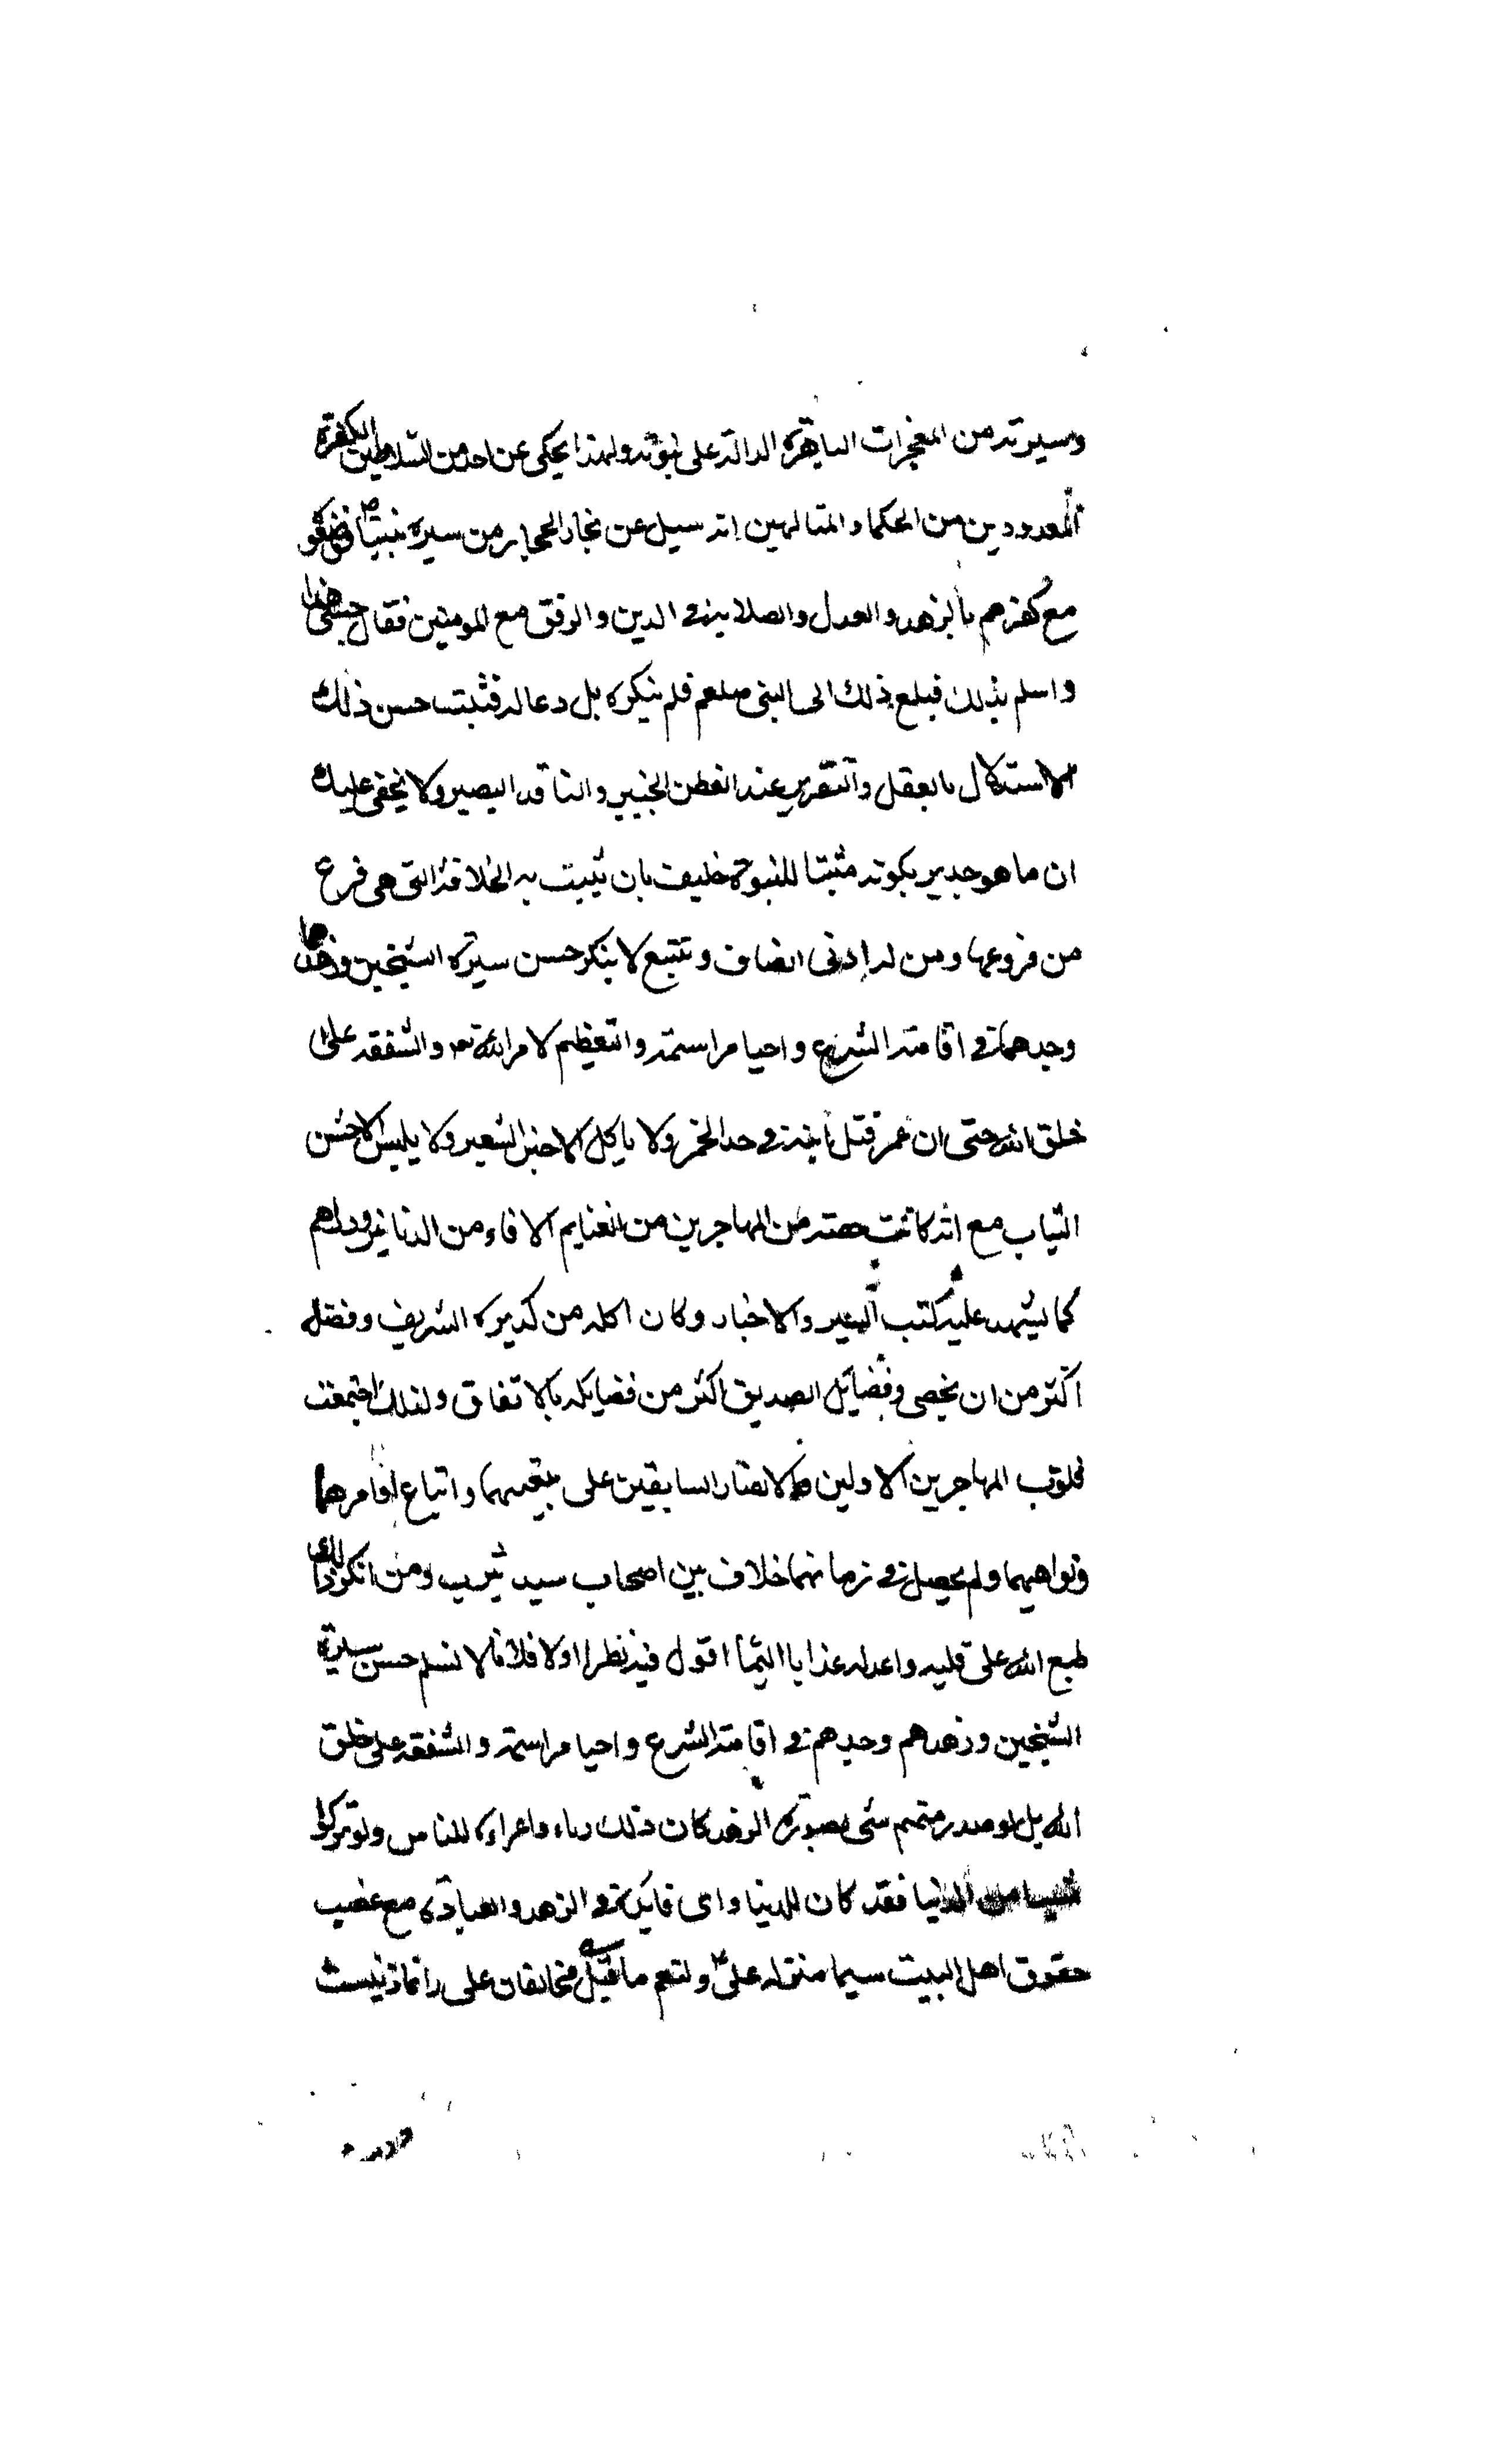 وسيرته من المعجزات الباهرة الدالة على نبوته ولهذا يحكى عن احد من السلاطين الكفرة
المعدودين من الحكماء المتالهين انه سيل عن تجار الحجاز من سيرة نبينا ص
مع كفرهم بالزهد والعدل والصلابة فى الدين والرفق مع المومنين فقال حسبى هذا
واسلم بذلك فبلغ ذلك الى النبى صلعم فلم ينكره بل دعا له فثبت حسن ذلك
الاستدلال بالعقل والتقرير عند الفطن الخبير والناقد البصير ولا يخفى عليك
ان ما هو جدير بكونه مثبتا للنبوة خليف بان يثبت به الخلافة التى هى فرع
من فروعها ومن له ادنى انصاف وتتبع لا ينكر حسن سيرة الشيخين وزهدهما
وجدهما فى اقامته الشرع واحيا مراسمه والتعظيم لامر الله تع والشفقه على
خلق الله حتى ان عمر قتل ابنه فى حد الخمر ولا ياكل الا خبز الشعير ولا يلبس الا خشن
الثياب مع انه كانت حصته من المهاجرين من الغنايم الافاء من الدنانير ودراهم
كما يشهد عليه كتب السير والاخبار وكان اكله من كد يده الشريف وفضله
اكثر من ان يحصى وفضائل الصديق اكثر من فضايله بالاتفاق ولذلك اجتمعت
قلوب المهاجرين الاولين والانصار السابقين على بيعتهما واتباع اوامرهما
ونواهيهما ولم يحصل فى زمانهما خلاف بين اصحاب سيد يثرب ومن انكر ذلك
طبع الله على قلبه واعد له عذابا اليما اقول فيه نظر اولا فلانا لا نسلم حسن سيرة
الشيخين وزهدهم وجدهم فى اقامته الشرع واحيا مراسمه والشفقه على خلق
الله بل لو صدر منهم شى بصورة الزهد كان ذلك رياء واغراء للناس ولو تركوا
شيبا من الدنيا فقد كان للدنيا واى فايدة فى الزهد والعبادة مع غضب
حقوق اهل البيت سيما منزله على ع ولنعم ما قيل مخالفان على را نماز نيست